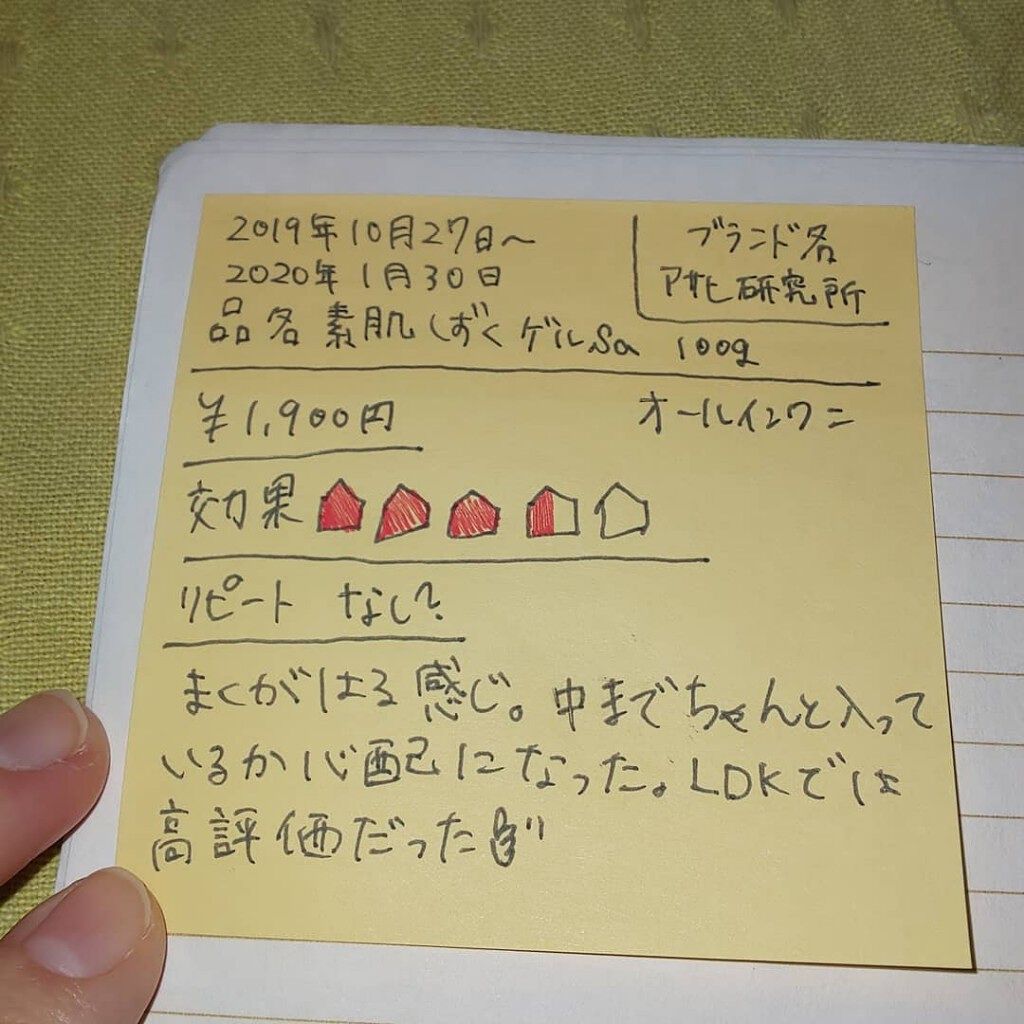 2019年10月27日~
2020年1月30日
ブランド名
アサヒ研究所
品名 素肌しずくゲルSa 100g
¥1,900円
オールインワン
効果
リピート なし?
まくがはる感じ。中までちゃんと入って
いるか心配になった。LDKでは
高評価だった